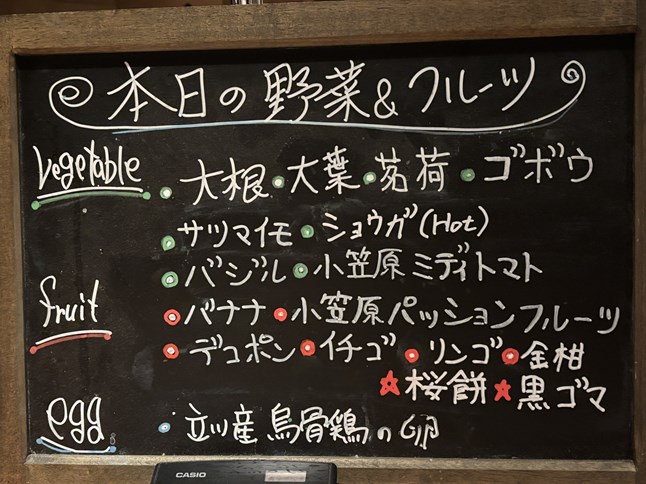 本日の野菜&フルーツ
Vegetable
大根 大葉 茗荷 ゴボウ
サツマイモ ショウガ(Hot)
バジル 小笠原ミディトマト
fruit
バナナ 小笠原パッションフルーツ
デコポン イチゴ リンゴ 金柑
★桜餅 ★黒ゴマ
egg
立川産 烏骨鶏の卵
CASIO